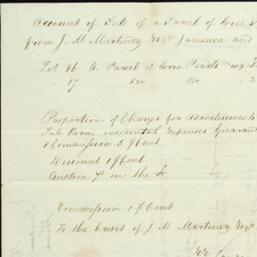 Account of Sale of a Parcel of
from J. M. Martinez Esqr Jamaica and
Lot 86 A Parcel of Pearls
" 87 Do Do
Proportion of Charges for Advertisements
Sale Room incidental Expenses
& Commission 5 ℔Cent
Discount 1 ℔Cent
Auction 7d in the £
Commission 1 ℔Cent
To the Credit of J M Martinez Esqr